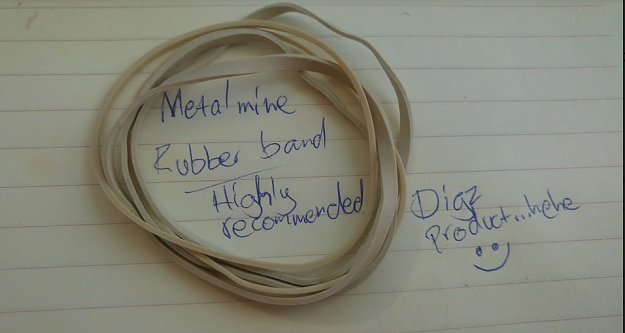 Metalmine
Rubber band
Highly
recommended
Digz
product...hehe